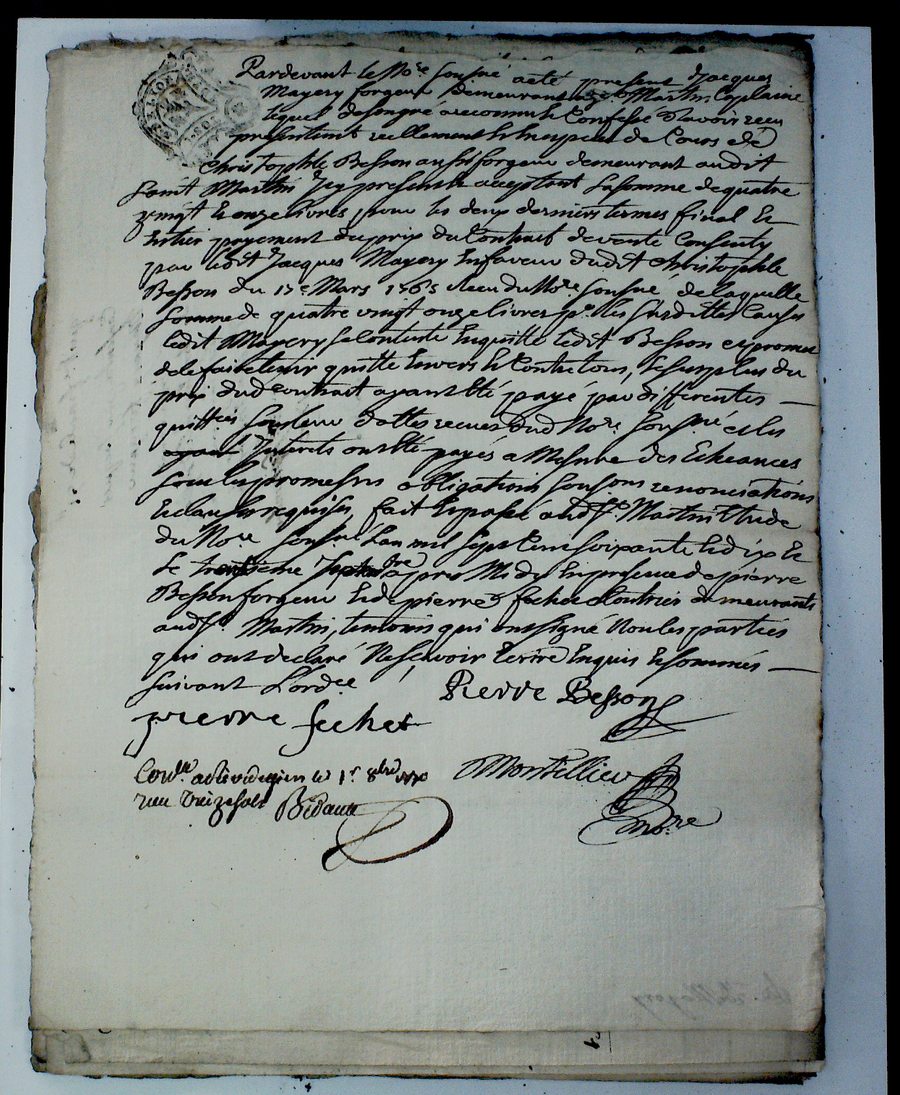 Pardevant le No.re Sousné a eté present Jacques
Mayery forgeur demeurant St Martin Laplaine
lequel de son gré a reconnu & Confessé d'avoir reçu
présentement reellement & en espece de Cours de
Christophle Besson aussi forgeur demeurant audit
Saint Martin Icy present & acceptant la somme de quatre
vingt & onze livres, pour les deux derniers termes final &
entier payement du prix du Contrait de vente Consenty
par ledit Jacques Mayery en faveur dudit Christophle
Besson du 17e Mars 1765 recu du No.re Sousné de laquelle
somme de quatre vingt onze livres pr. les susdittes Causes
ledit Mayery se Contente En quitte ledit Besson et promet
de le faire tenir quitte Envers & Contre tous, le surplus du
prix dud Contrait ayant eté payé par differentes
quittes sous leur dattes recues dud No.re Sousné et les
Interets ont eté payés a Mesure des Echeances
sous les promesses obligations soumons renonciations
& clauses requises, fait & passé aud St. Martin Etude
du No.re Sousné L'an mil sept Cent soixante & dix &
le treisième Septembre après Midy En presence de pierre
Besson forgeur & de pierre fechet Cloutrier demeurants
aud St. Martin, temoins qui ont signé Non les parties
qui ont declaré Ne scavoir Ecrire Enquis & sommés
suivant L'ord.ce
Pierre Besson
pierre fechet
Con.lle a rivedegier le 1.r 8bre 1770
reçu treize sols Bidaud
Montellier
No.re